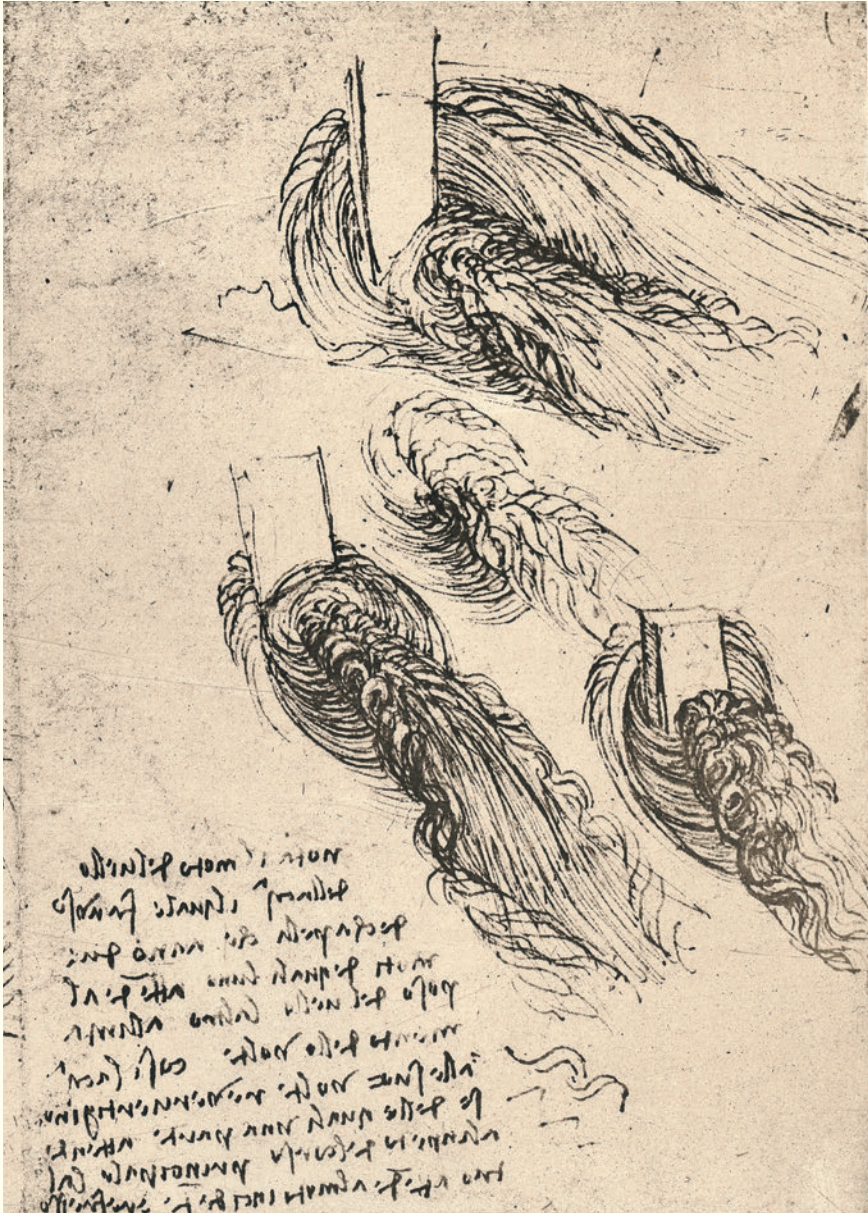 nota il moto del vello
dellacqª il quale fa a uso
de chapelli che anno due
moti de quali luno attēde al
peso del vello laltro al linia
mento delle volte cosi lacqª
a lle sue volte revertigino
se delle quali una parte attende
al inpeto del corso principale lal
tro attēde al moto incidēte e refresso